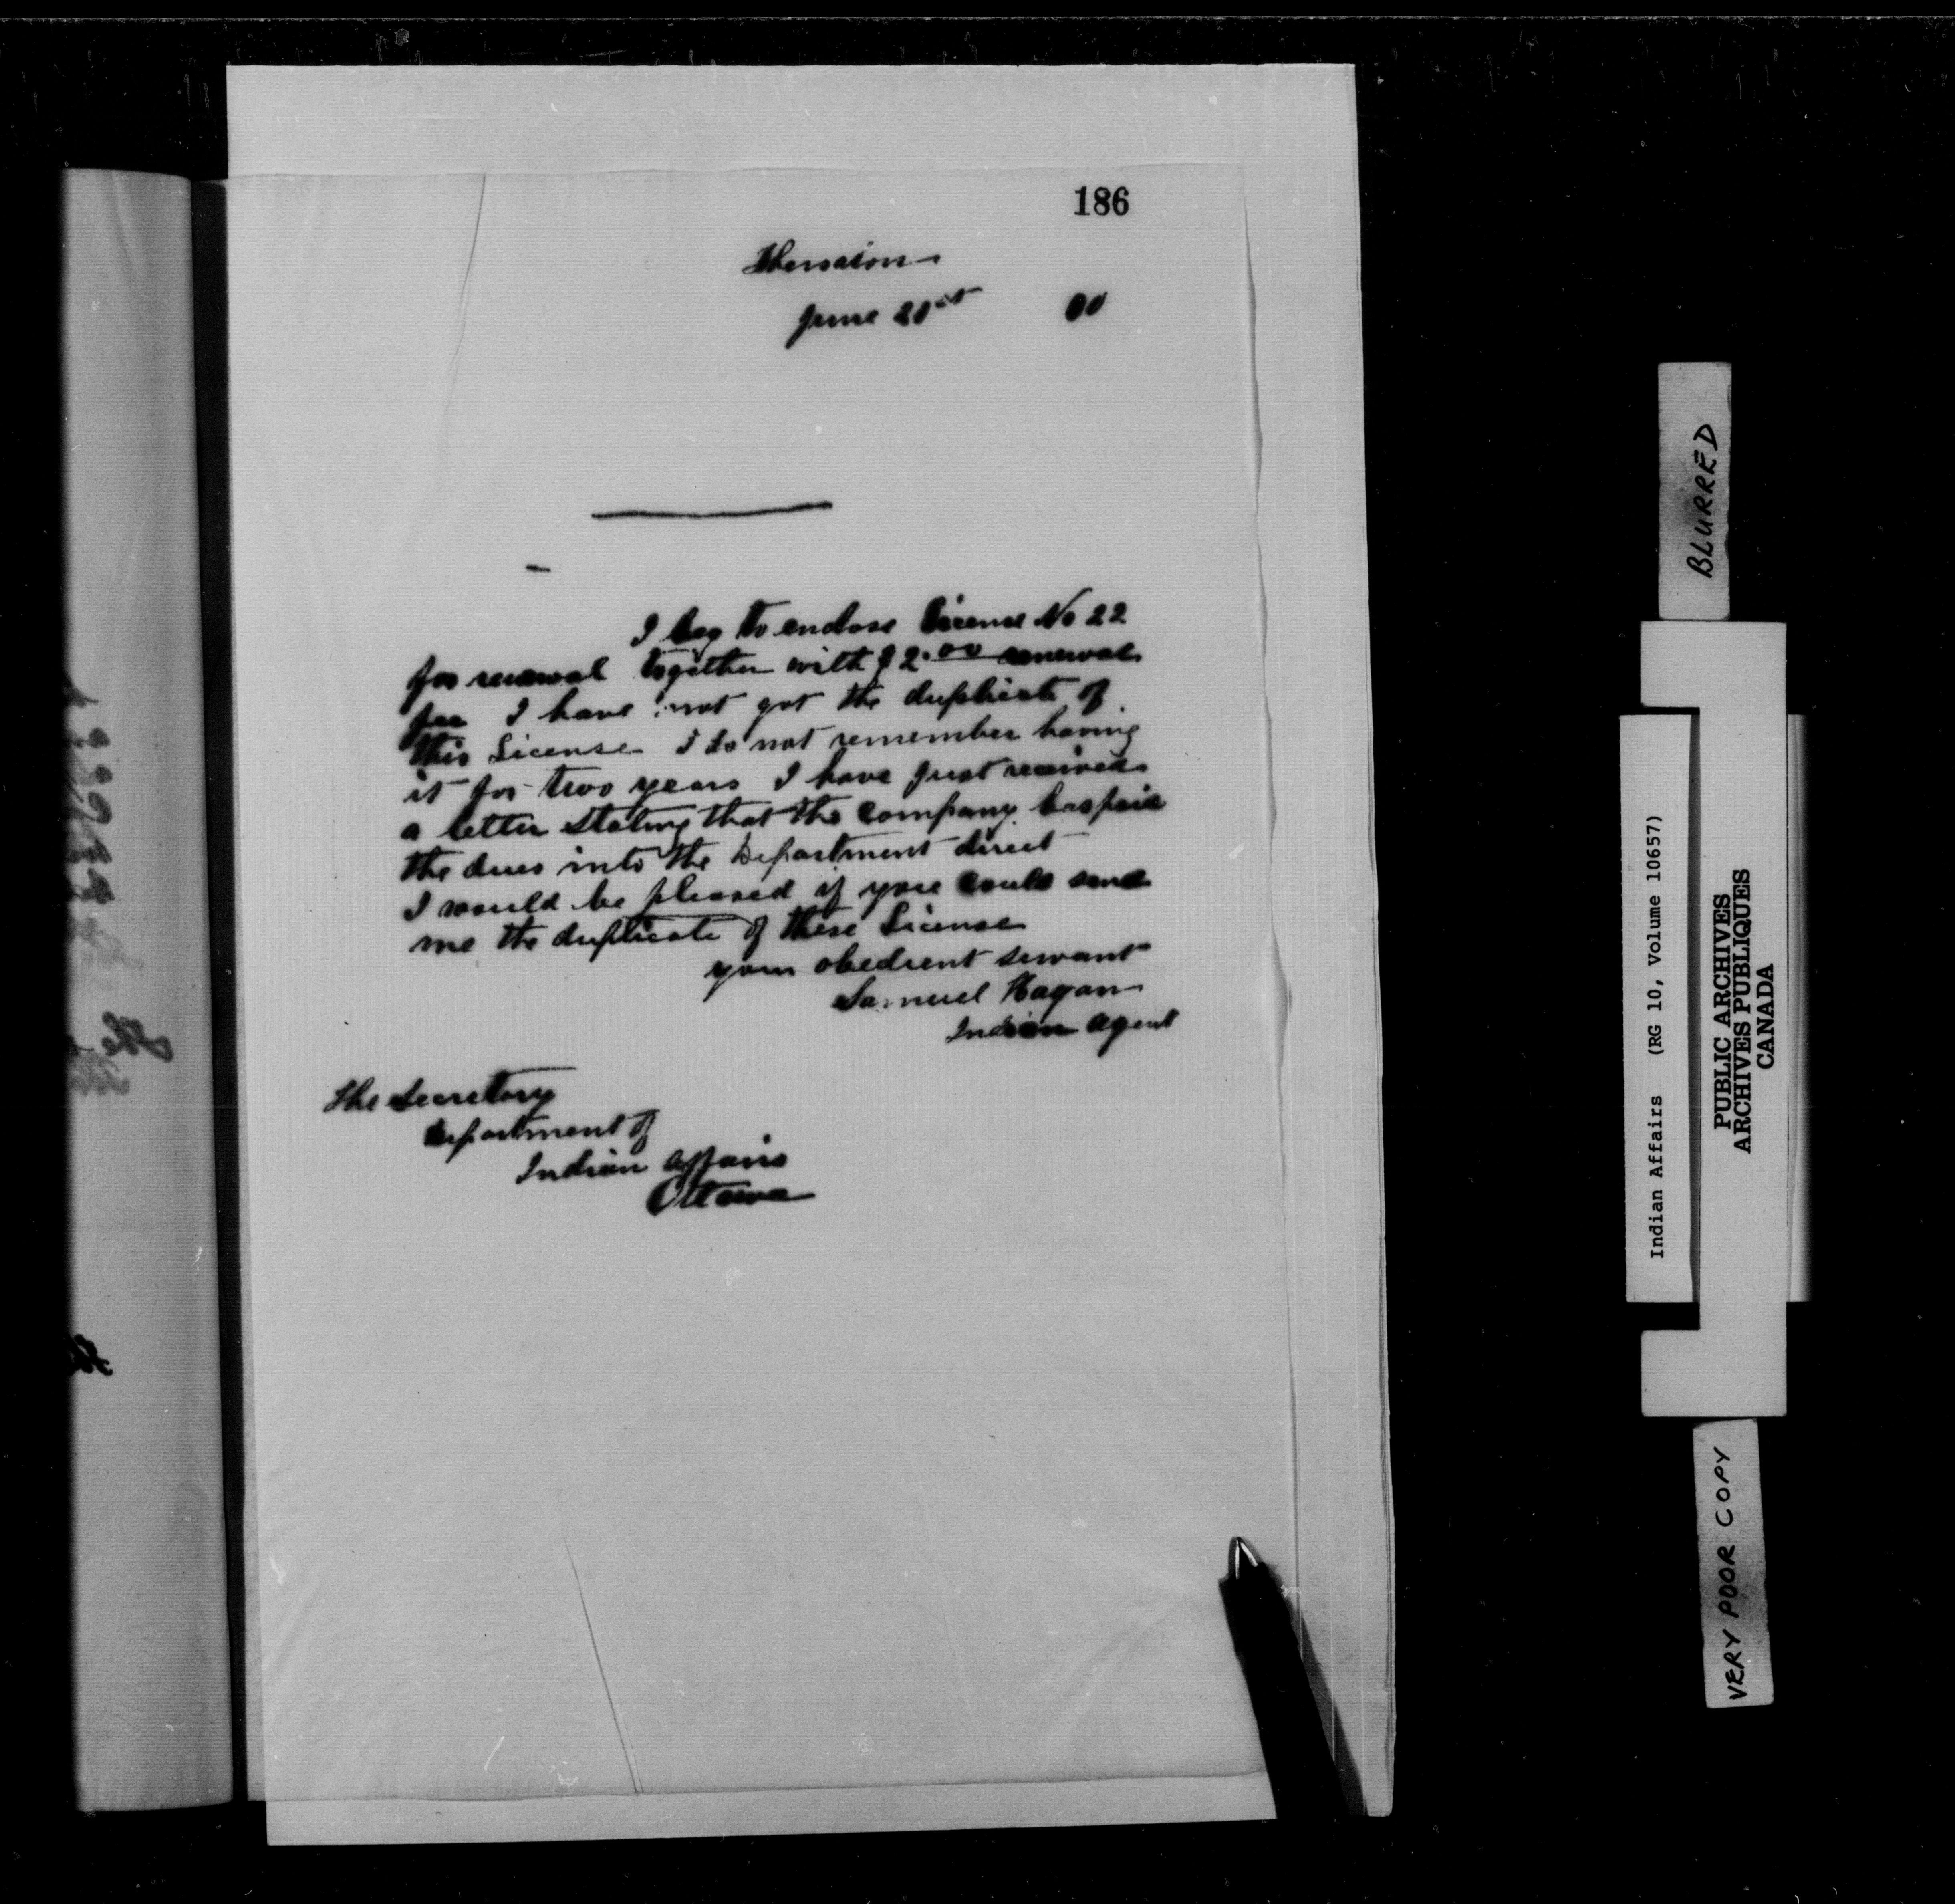 186
Thessalon
June 21st 00
I beg to enclose License No 22
for renewal together with $2.00 renewal
fee I have not got the duplicate of
this License I do not remember having
it for two years I have just received
a letter stating that the Company has paid
the dues into the Department direct
I would be pleased if you could send
me the duplicate of these License
your obedient servant
Samuel Hagan
Indian Agent
The Secretary
Department of
Indian Affairs
Ottawa
BLURRED
Indian Affairs (RG 10, Volume 10657)
PUBLIC ARCHIVES
ARCHIVES PUBLIQUES
CANADA
VERY POOR COPY